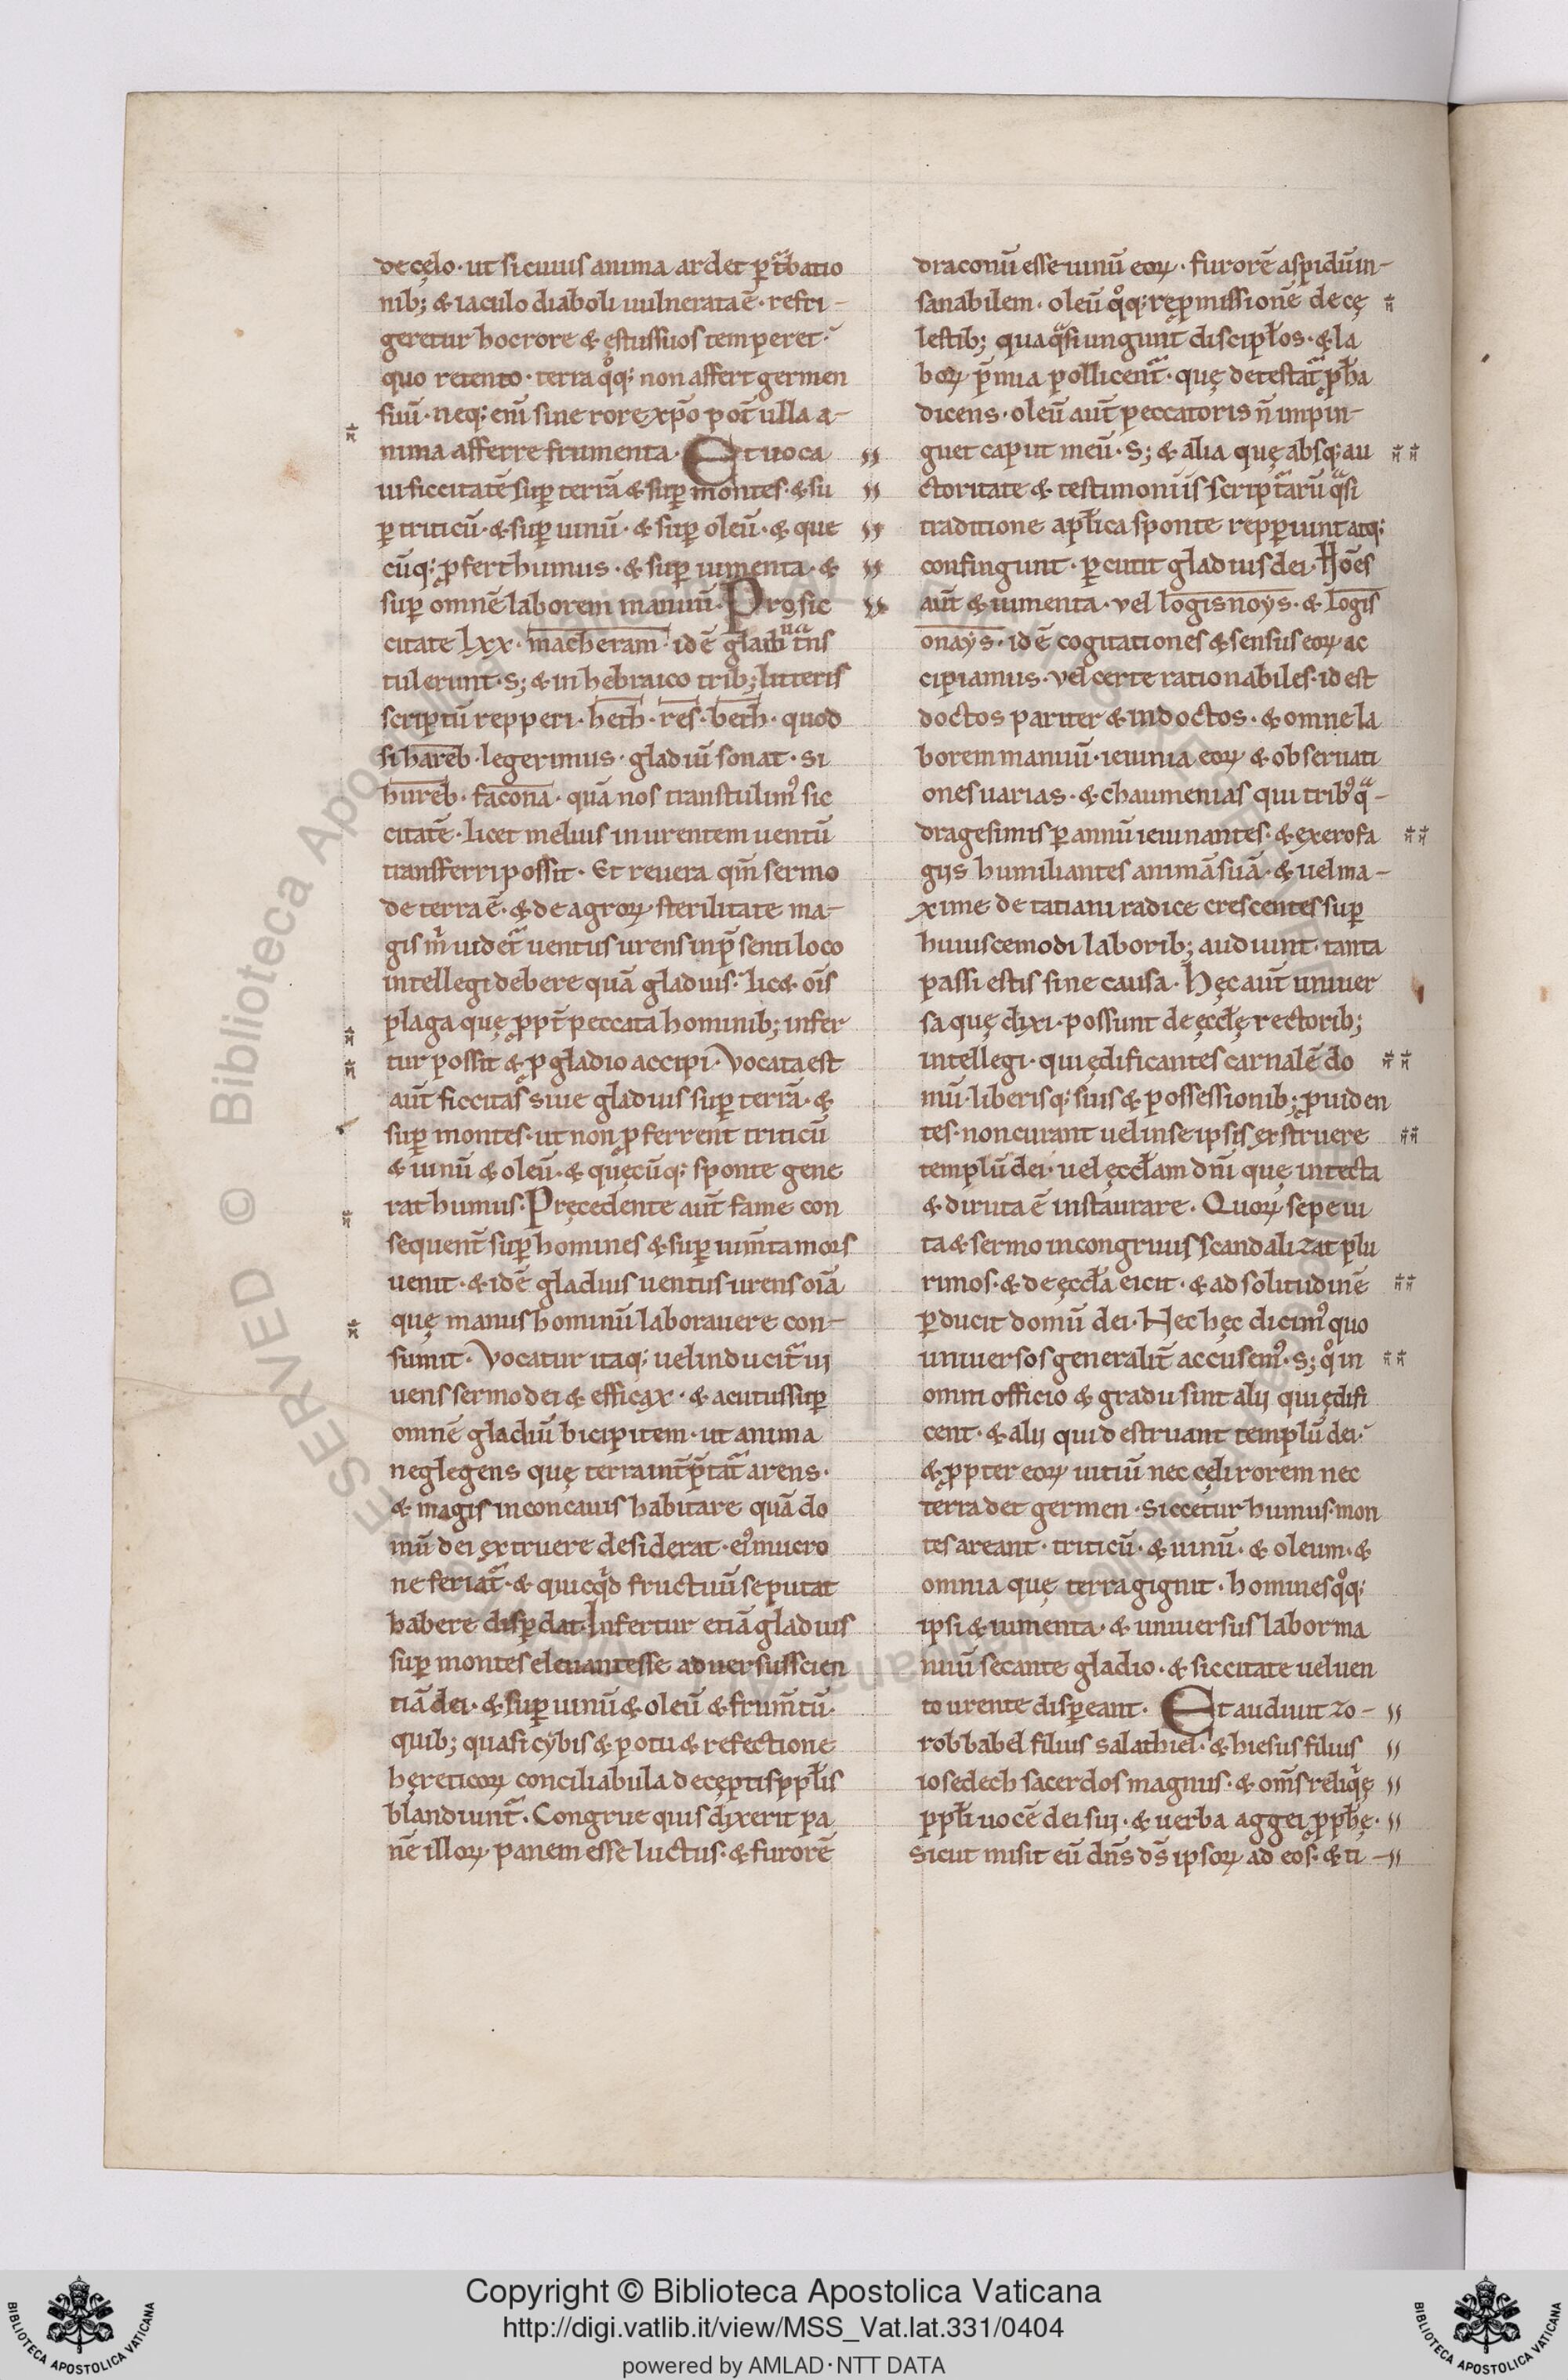 de cęlo · ut si cuius anima ardet ꝑ t̃batio
nib; & iaculo diaboli uulnerata ē · refri-
geretur hoc rore & ęstus suos temperet ·
quo retento · terra qͦq; non affert germen
suū · neq; eni̅ sine rore xp̅o pot̅ ulla a-
nima afferre frumenta · Et uoca
ui siccitatē suꝑ terrā & suꝑ montes · & su
ꝑ triticū · & suꝑ uinū · & suꝑ oleū · & que
cūq; ꝓfert humus · & suꝑ iumenta · &
suꝑ omnē laborem manuū · Pro sic
citate lxx · macheram · id ē gladiū t̅ns
tulerunt · S; & in hebraico trib; litteris
scriptū repperi · heth · res · beth · quod
si hareb · legerimus · gladiū sonat · si
hureb · facona · quā nos transtulimꝰ sic
citatē · licet melius in urentem uentū
transferri possit · Et reuera qm̅ sermo
de terra ē · & de agroꝝ sterilitate ma-
gis m̅ uidet̃ uentus urens in p̅senti loco
intellegi debere quā gladius · lic& · ois̅
plaga quę ꝓpt̅ peccata hominib; infer
tur possit & ꝓ gladio accipi · Vocata est
aut̅ siccitas siue gladius suꝑ terrā · &
suꝑ montes · ut non ꝓferrent triticū
& uinū & oleū · & quęcūq; sponte gene
rat humus · Pręcedente aut̅ fame con
sequent̅ suꝑ homines & suꝑ ium̅ta mors
uenit · & idē gladius uentus urens oi̅a
quę manus hominū laborauere con-
sumit · Vocatur itaq; uel inducit̃ ui
uens sermo dei & efficax · & acutus suꝑ
omnē gladiū bicipitem · ut anima
neglegens quę terra int̅p̅tat̃ arens ·
& magis in concauis habitare quā do
mū dei extruere desiderat · eiꝰ mucro
ne feriat̃ · & quicq̇d fructuū se putat
habere disꝑdat · Infertur etiā gladius
suꝑ montes eleuantes se aduersus scien
tiā dei · & suꝑ uinū & oleū & frum̅tū ·
quib; quasi cybis & potu & refectione
hereticoꝝ conciliabula deceptis ppl̅is
blandiunt̃ · Congrue quis dixerit pa
nē illoꝝ panem esse luctus · & furorē
draconū esse uinū eoꝝ · furorē aspidū in-
sanabilem · oleū qͦq; reꝓmissionē de cę
lestib; qua qͣsi ungunt discipl̅os · & la
boꝝ p̅mia pollicent̃ · quę detestat̃ ꝓph̅a
dicens · oleū aut̅ peccatoris n̅ impin-
guet caput meū · S; & alia quę absq; au
ctoritate & testimoniis scripturarū qͣsi
traditione apl̅ica sponte repperiunt atq;
confingunt · ꝑcutit gladius dei · Ho̅es
aut̅ & iumenta · vel logisnoys · & logis
onays · id ē cogitationes & sensus eoꝝ ac
cipiamus · vel certe rationabiles · id est
doctos pariter & indoctos · & omne la
borem manuū · ieiunia eoꝝ & obseruati
ones uarias · & chaumenias qui tribꝰ qͣ-
dragesimis ꝑ annū ieiunantes · & exerofa
giis humiliantes animā suā · & uel ma-
xime de tatiani radice crescentes suꝑ
huiuscemodi laborib; audiunt · tanta
passi estis sine causa · Hęc aut̅ uniuer
sa quę dixi · possunt de ęccl̅ę rectorib;
intellegi · qui ędificantes carnalē do
mū · liberisq; suis & possessionib; ꝓuiden
tes · non curant uel in se ipsis exstruere
templū dei · uel ęccl̅am dn̅i quę intecta
& diruta ē instaurare · Quoꝝ sepe ui
ta & sermo incongruus scandalizat plu
rimos · & de ęccl̅a eicit · & ad solitudinē
ꝑducit domū dei · Nec hęc dicimꝰ quo
uniuersos generalit̅ accusemꝰ · S; qͦ in
omni officio & gradu sint alij qui ędifi
cent · & alij qui destruant templū dei ·
& ꝓpter eoꝝ uitiū nec cęli rorem nec
terra det germen · Siccetur humus · mon
tes areant · triticū · & uinū · & oleum · &
omnia quę terra gignit · homines qͦq;
ipsi & iumenta · & uniuersus labor ma
nuū secante gladio · & siccitate uel uen
to urente disꝑeant · Et audiuit zo-
robbabel filius salathiel · & hiesus filius
iosedech sacerdos magnus · & om̅s reliq̇ę
ppl̅i uocē dei sui · & uerba aggei ꝓph̅ę ·
sicut misit eū dn̅s ds̅ ipsoꝝ ad eos · & ti-
Copyright © Biblioteca Apostolica Vaticana
http://digi.vatlib.it/view/MSS_Vat.lat.331/0404
powered by AMLAD·NTT DATA
BIBLIOTECA APOSTOLICA VATICANA
BIBLIOTECA APOSTOLICA VATICANA